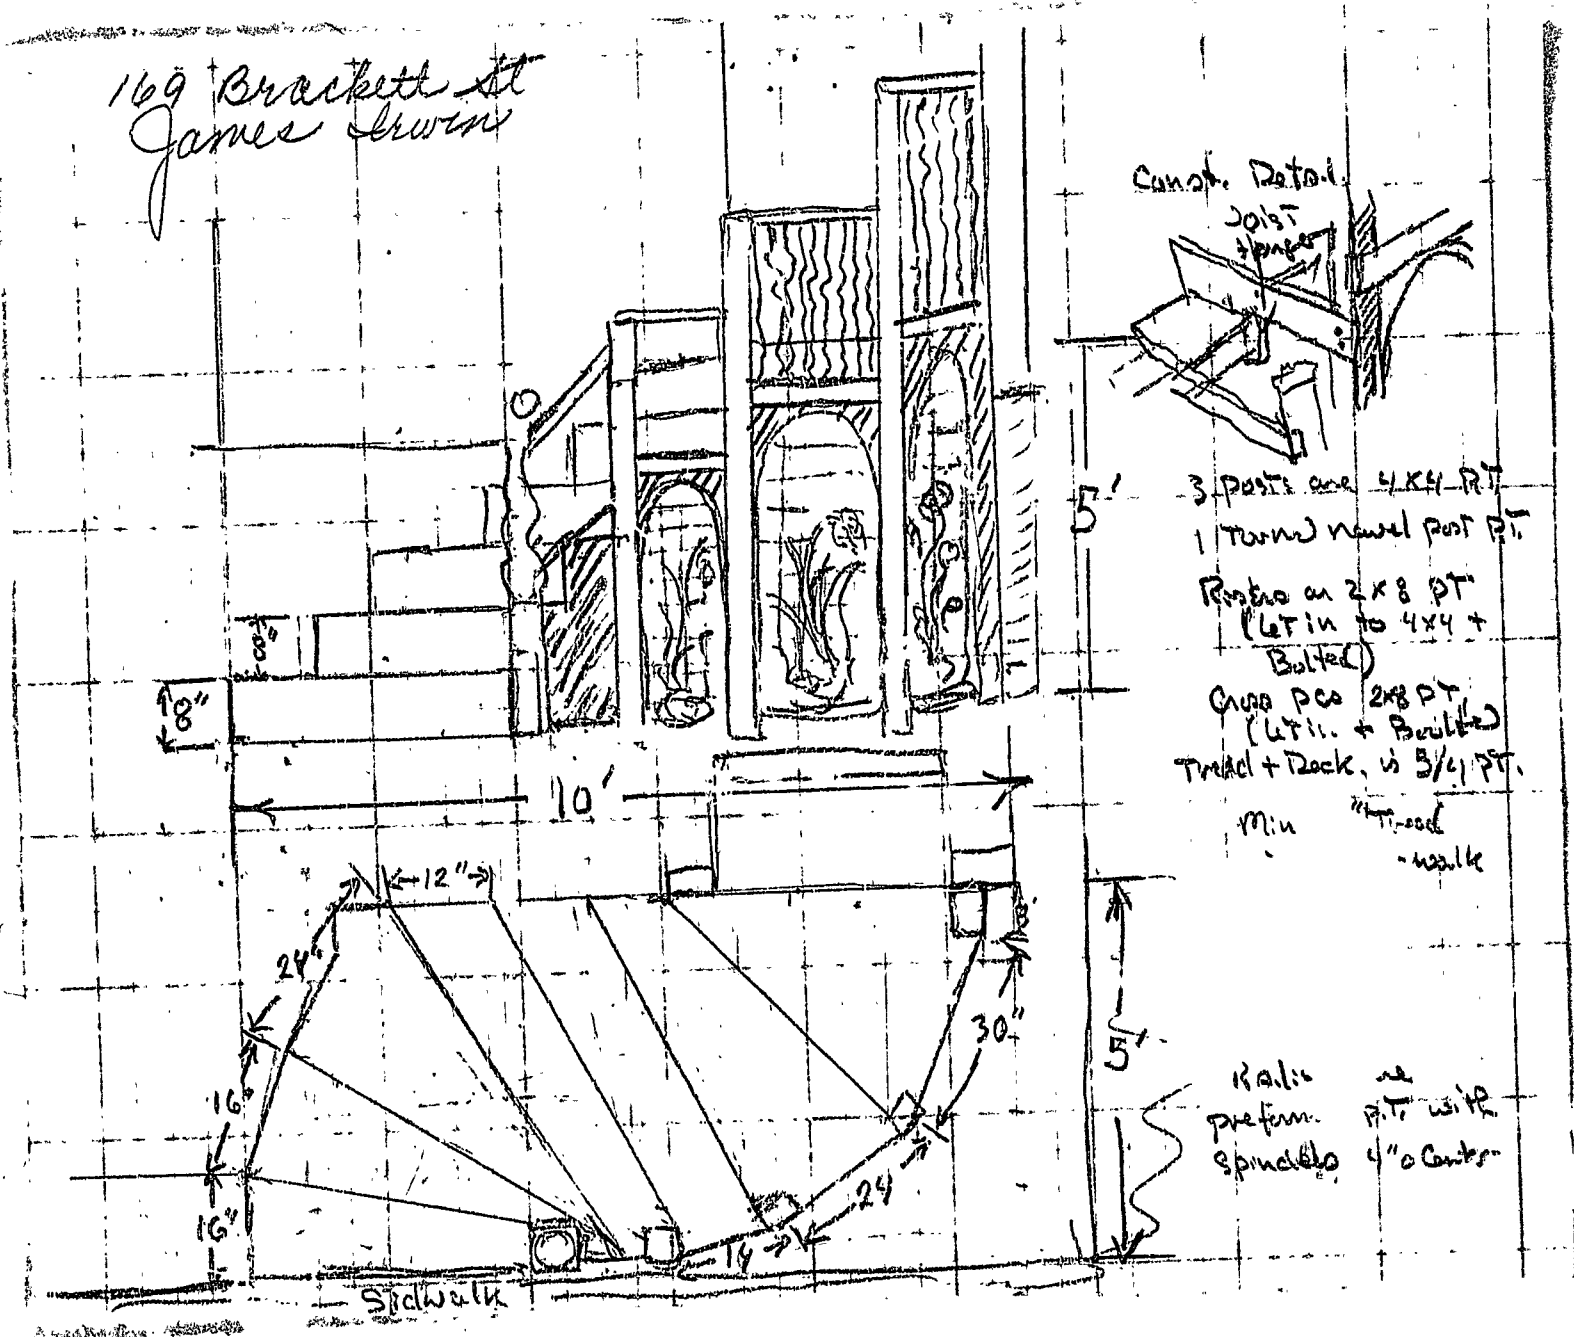 169 Brackett St
James Irwin
Const. Detail.
Joist
Hanger
3 posts are 4x4 PT
1 Turned newel post PT.
Risers are 2x8 PT
(Let in to 4x4 +
Bolted)
Cross pcs 2x8 PT,
(Let in + Boilted)
Tread + Deck. is 5/4 PT.
Min "Tread
-walk
5'
8"
8"
10'
12"
24"
16"
16"
8"
30"
24
14
5'
preform. P.T. with
spindles 4" o Center
Sidwalk